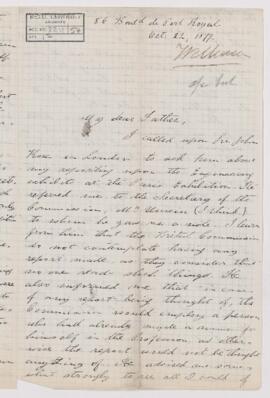 86 Bould de Port Royal
Oct. 22, 1877
William
My dear Father,
I called upon Sir John
Rose in London to ask him about
my reporting upon the Engineering
exhibits at the Paris Exhibition. He
referred me to the Secretary of the
Commission, Mr (I think)
to whom he gave me a note. I learn
from him that the British Commission
do not contemplate having any
report made, as they consider that
no one read such things. He
also informed me that in case
of any report being thought of, the
Commission would employ a person
who had already made a name for
himself in the Profession, as other-
wise the report would not be thought
anything of. He advised me some-
what strongly to see all I could of